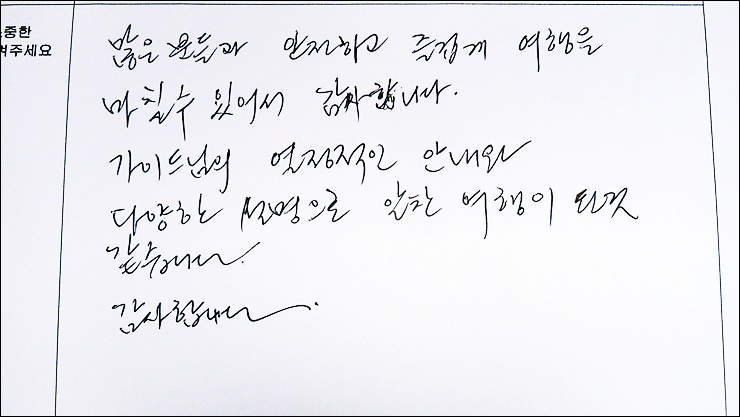 소중한
겨주세요
많은 분들과 안전하고 즐겁게 여행을
마칠수 있어서 감사합니다.
가이드님의 열정적인 안내와
다양한 설명으로 알찬 여행이 된것
같습니다.
감사합니다.